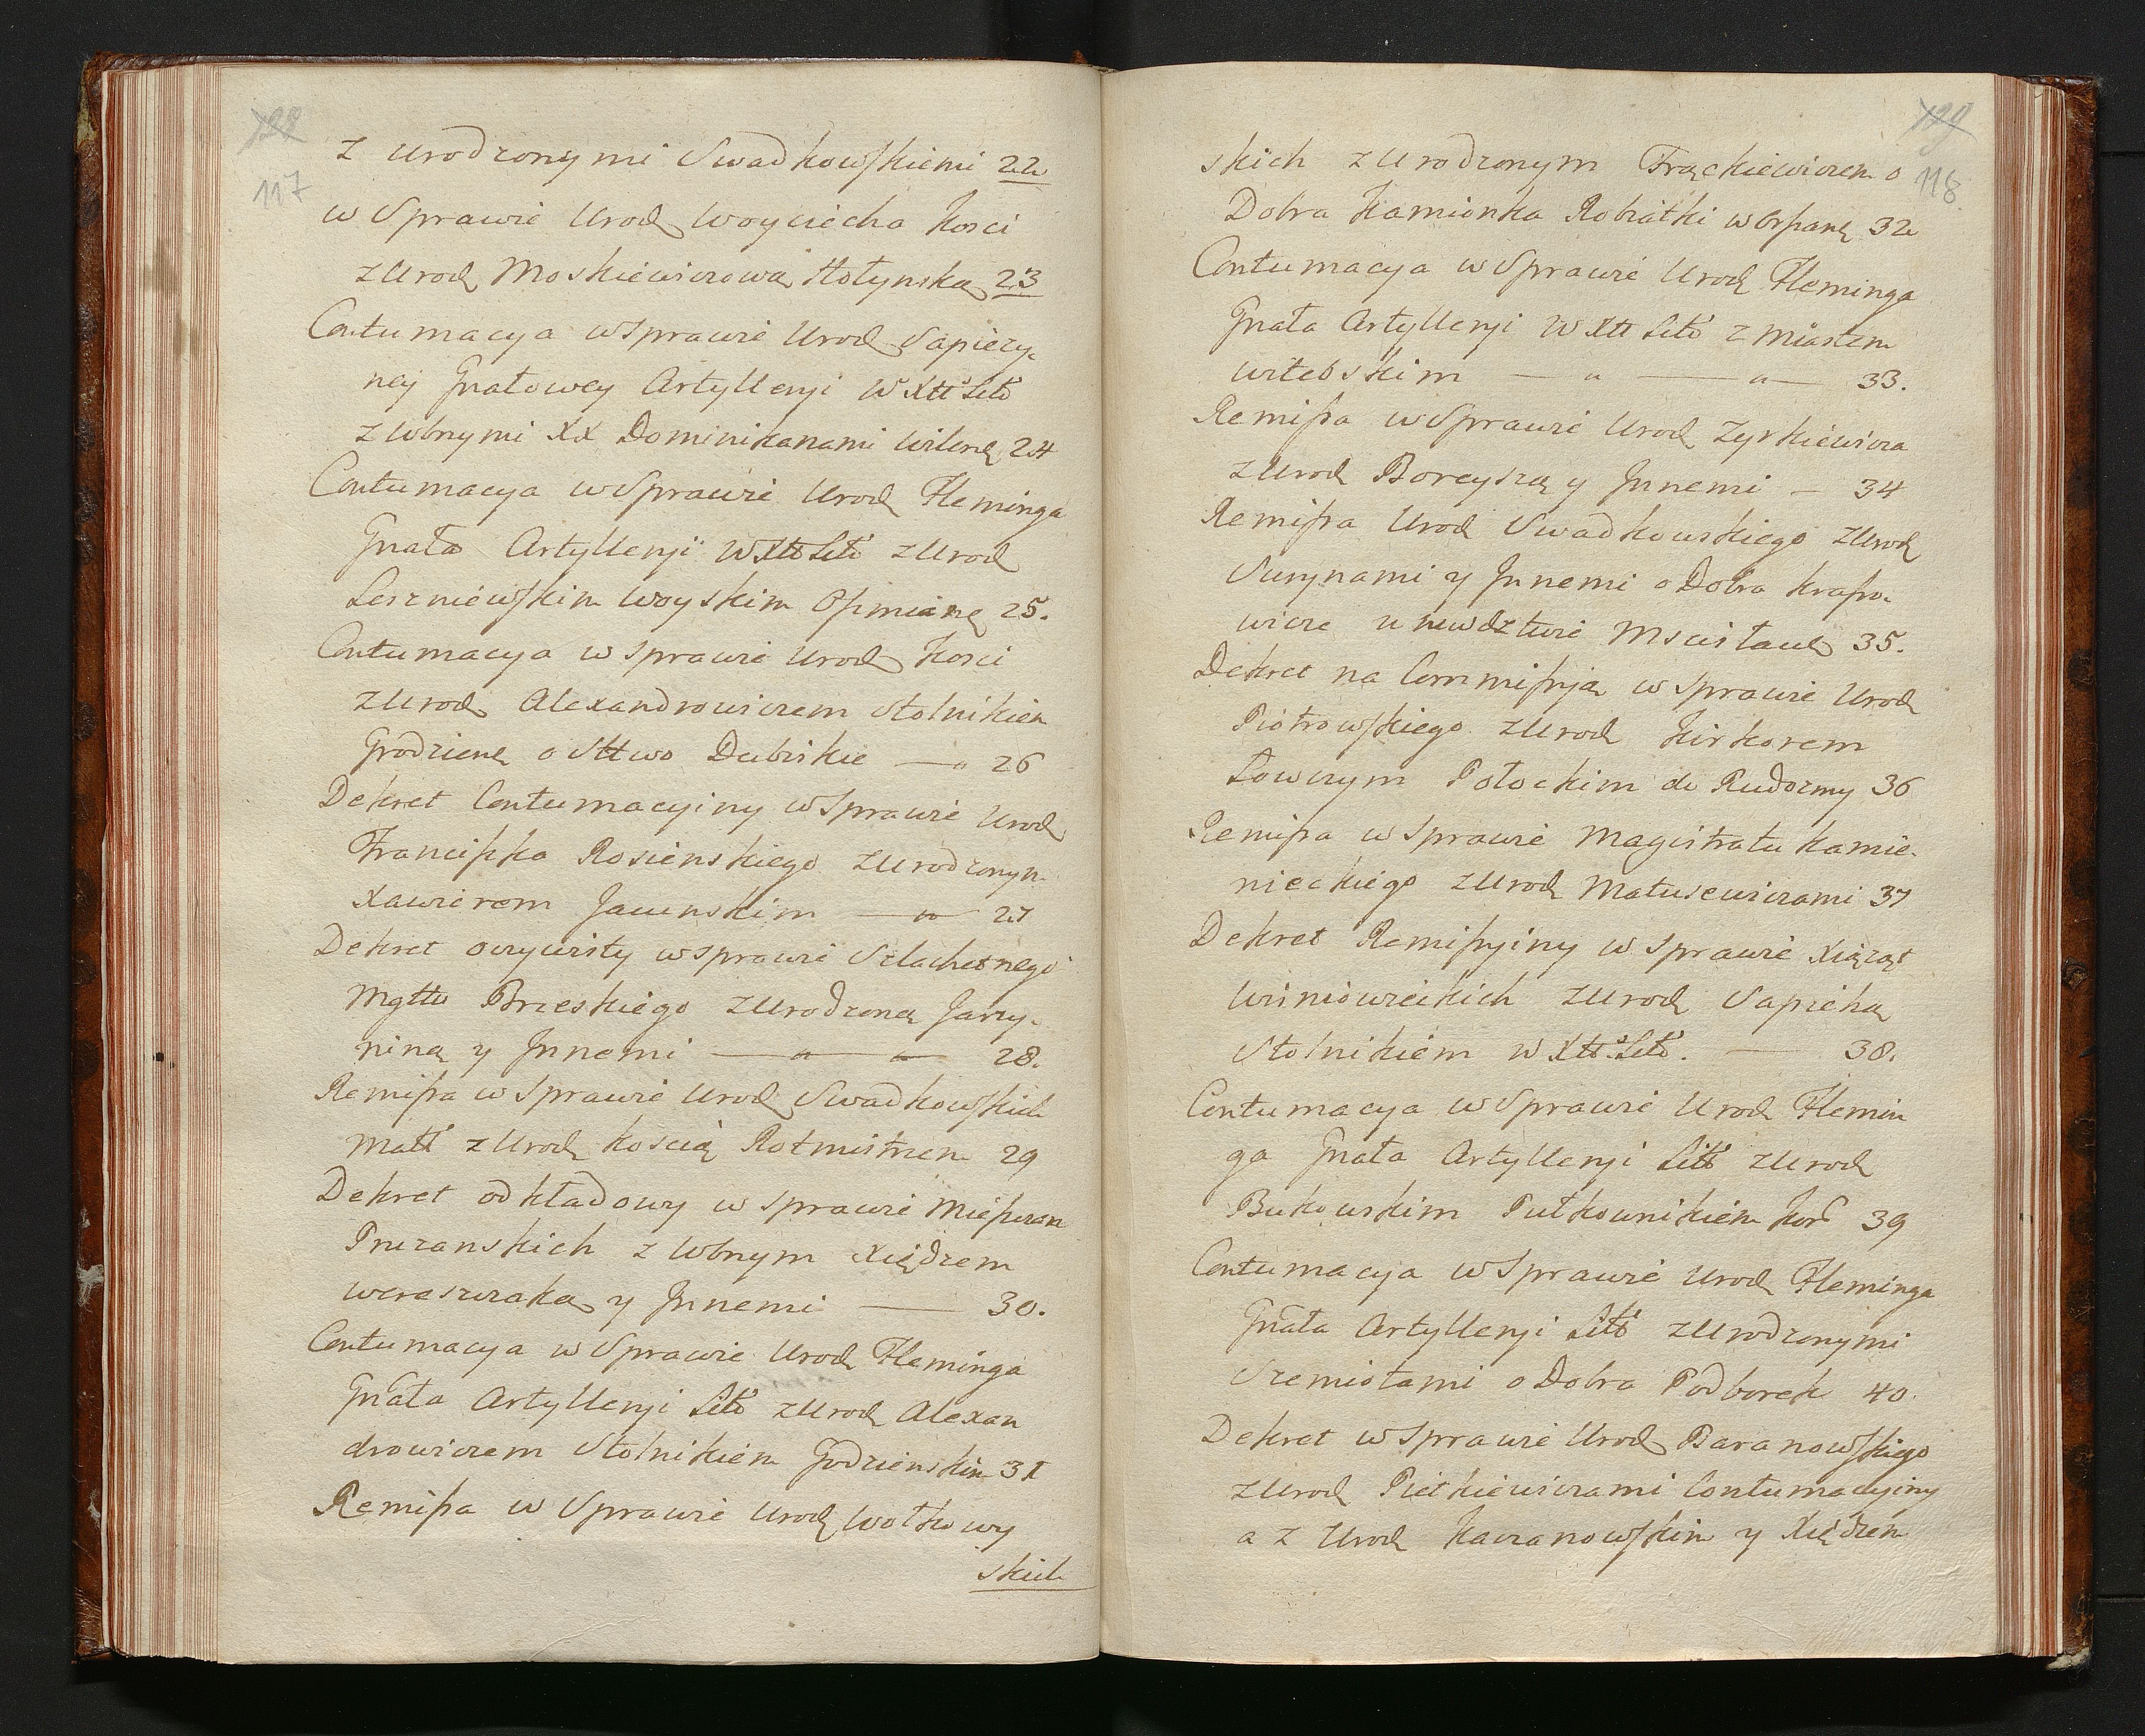 122
117
z urodzonymi Swadkowskiemi 22
w Sprawie Urod Woyciecha Kosci
z Urod Moskiewiczową Hołynską 23
Contumacya w Sprawie Urod Sapieży-
ney Gnałowey Artylleryi W Xtt Litt
z Wbnymi XX Dominikanami Wilenę 24
Contumacya w Sprawie Urod Fleminga
Gnała Artylleryi W Xtt Litt z Urod
Leszniewskim Woyskim Oszmianę 25.
Contumacya w Sprawie Urod Kosci
z Urod Alexandrowiczem Stolnikiem
Grodzienę o Sttwo Dubiskie — 26
Dekret Contumacyiny w Sprawie Urod
Franciszka Rosienskiego z Urodzonym
Xawierem Jawenskim — 27
Dekret oczywisty w sprawie Szlachetnego
Mgttu Brzeskiego z Urodzoną Jarzy-
niną y Jnnemi — 28.
Remissa w Sprawie Urod Swadkowskich
Matt z Urod Koscią Rotmistrzem 29
Dekret odkładowy w Sprawie Mieszczan
Pruzanskich z Wbnym Xiędzem
Wereszczaką y Jnnemi — 30.
Contumacya w Sprawie Urod Fleminga
Gnała Artylleryi Litt z Urod Alexan
drowiczem Stolnikiem Godzienskim 31
Remissa w Sprawie Urod Wołkowy
skich
129
118
skich z Urodzonym Frąckiewiczem o
Dobra Kamionka Robiatki w Orszanę 32
Contumacya w Sprawie Urod Fleminga
Gnała Artylleryi W Xtt Litt z Miastem
Witebskim — 33.
Remissa w Sprawie Urod Zyrkiewicza
z Urod Boreyszą y Jnnemi — 34
Remissa Urod Swadkowskiego z Urod
Surynami y Jnnemi o Dobra Krasso-
wicze w Mscisław 35.
Dekret na Commissyią w Sprawie Urod
Piotrowskiego z Urod Kirkorem
Łowczym Połockim do Rudomy 36
Remissa w Sprawie Magistratu Kamie-
nieckiego z Urod Matusewiczami 37
Dekret Remissyiny w Sprawie Xiążąt
Wisniowieckich z Urod Sapiehą
Stolnikiem W Xtt Litt. — 38.
Contumacya w Sprawie Urod Flemin
ga Gnała Artylleryi Litt z Urod
Bukowskim Pułkownikiem Kor 39
Contumacya w Sprawie Urod Fleminga
Gnała Artylleryi Litt z Urodzonymi
Szemiotami o Dobra Podborek 40.
Dekret w Sprawie Urod Baranowskiego
z Urod Pietkiewiczami Contumacyiny
a z Urod Kaczanowskim y Xiędzem